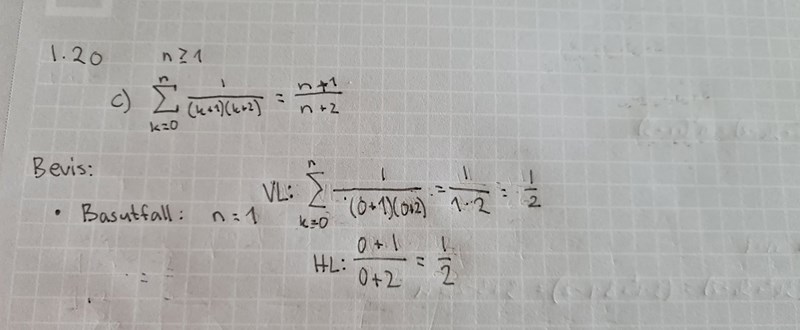 1.20 n ≥ 1
c) \sum_{k=0}^{n} \frac{1}{(k+1)(k+2)} = \frac{n+1}{n+2}
Bevis:
• Basutfall: n = 1 VL: \sum_{k=0}^{n} \frac{1}{(0+1)(0+2)} = \frac{1}{1·2} = \frac{1}{2}
HL: \frac{0+1}{0+2} = \frac{1}{2}